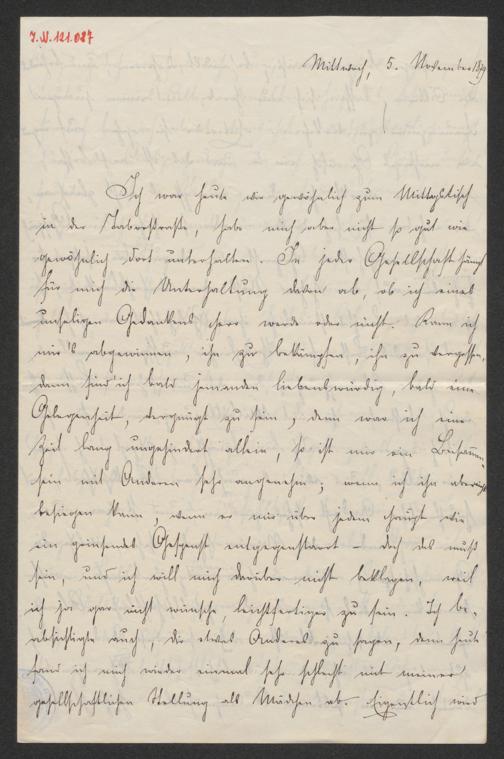 I.N. 121.087
Mittwoch, 5. November 1879
Ich war heute wie gewöhnlich zum Mittagstisch
in der Taborstraße, habe mich aber nicht so gut wie
gewöhnlich dort unterhalten. In jeder Gesellschaft hängt
für mich die Unterhaltung davon ab, ob ich eines
unseligen Gedankens Herr werde oder nicht. Kann ich
mir's abgewinnen, ihn zu bekämpfen, ihn zu vergessen,
dann find' ich bald jemanden liebenswürdig, bald eine
Gelegenheit, vergnügt zu sein; denn war ich eine
Zeit lang ungehindert allein, so ist mir ein Beisammen-
sein mit Anderen sehr angenehm; wenn ich ihn aber nicht
besiegen kann, wenn er mir über jedem Haupt wie
ein grinsendes Gespenst entgegenstarrt – doch das muß
sein, und ich will mich darüber nicht beklagen, weil
ich ja gar nicht wünsche, leichtfertiger zu sein. Ich be-
absichtigte auch, dir etwas Anderes zu sagen, denn heut
fand ich mich wieder einmal sehr schlecht mit meiner
gesellschaftlichen Stellung als Mädchen ab. Eigentlich wird